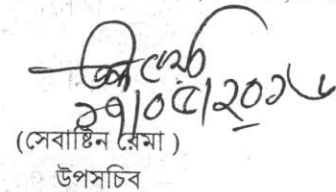 ২৭/০৫/২০১৮
(সেবাষ্টিন রেমা )
উপসচিব